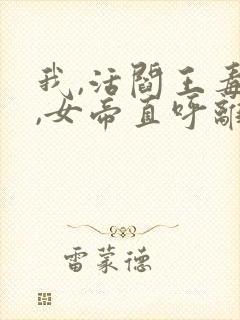 我,活阎王毒
,女帝直呼离
雷蒙德